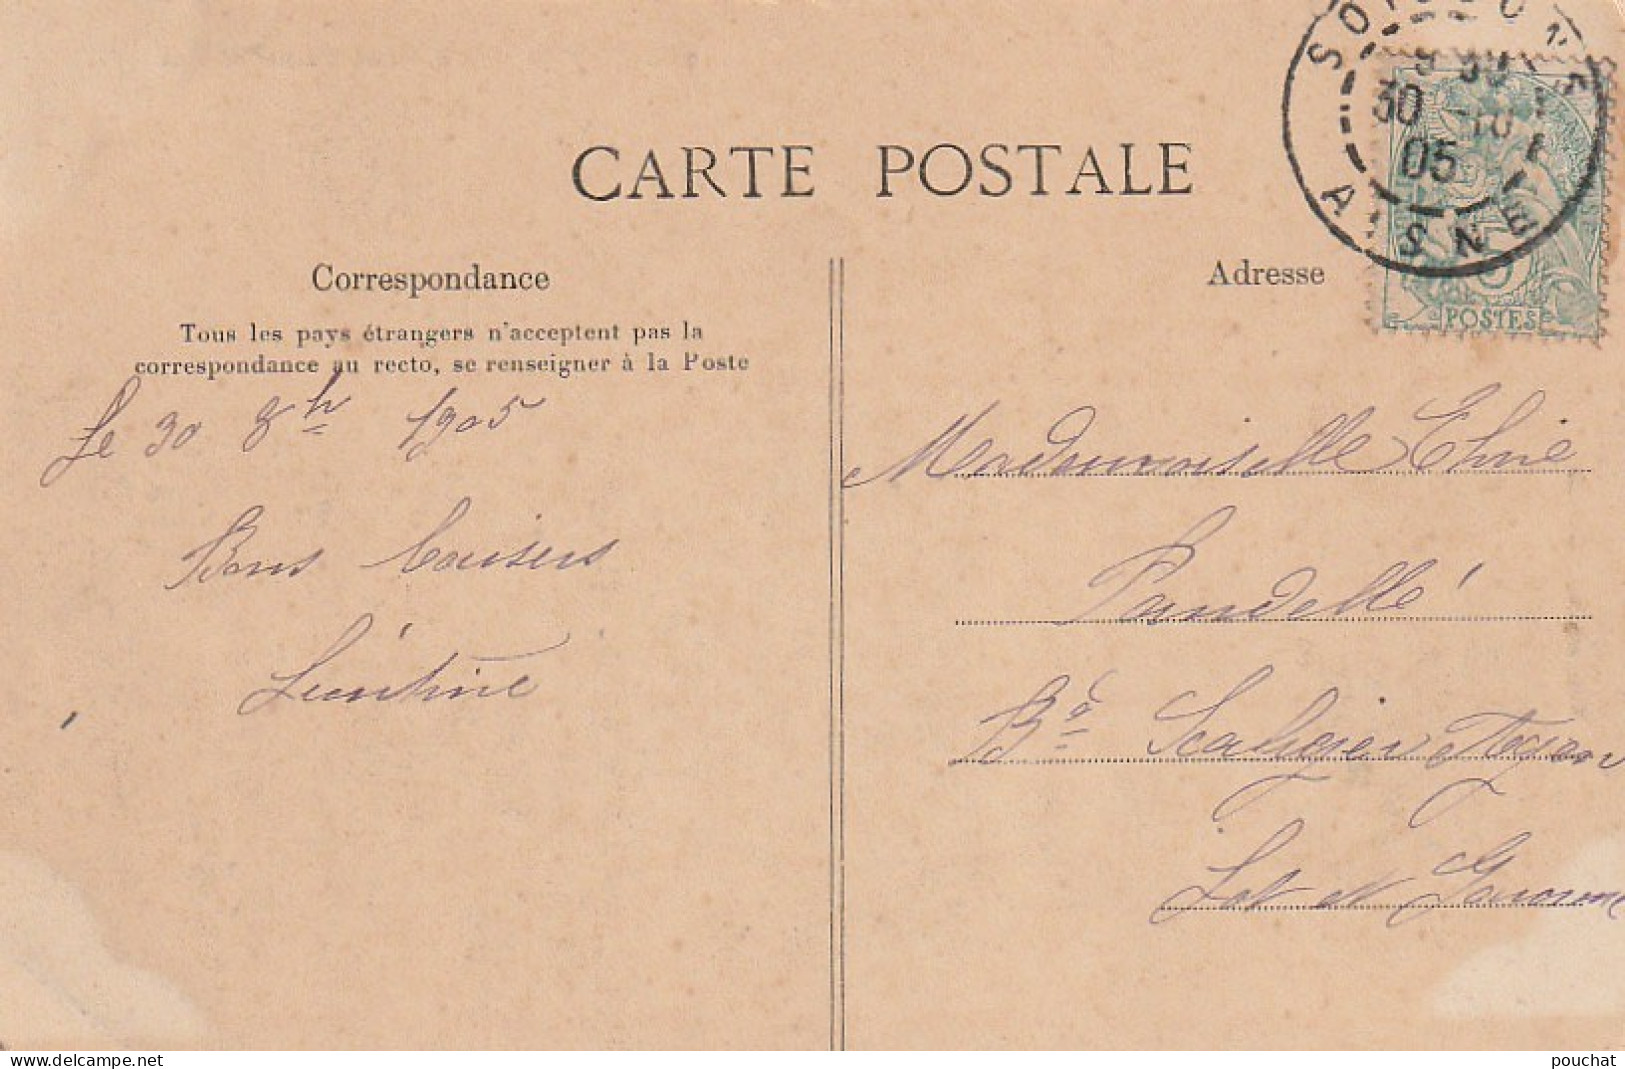 CARTE POSTALE
Correspondance
Tous les pays étrangers n'acceptent pas la
correspondance au recto, se renseigner à la Poste
Le 30 8bre 1905
Bons baisers
Léontine
Adresse
Mademoiselle
Pandellé
Bd Scaliger Agen
Lot et Garonne
SOISSONS
30 -10
05
AISNE
5
POSTES
www.delcampe.net
pouchat